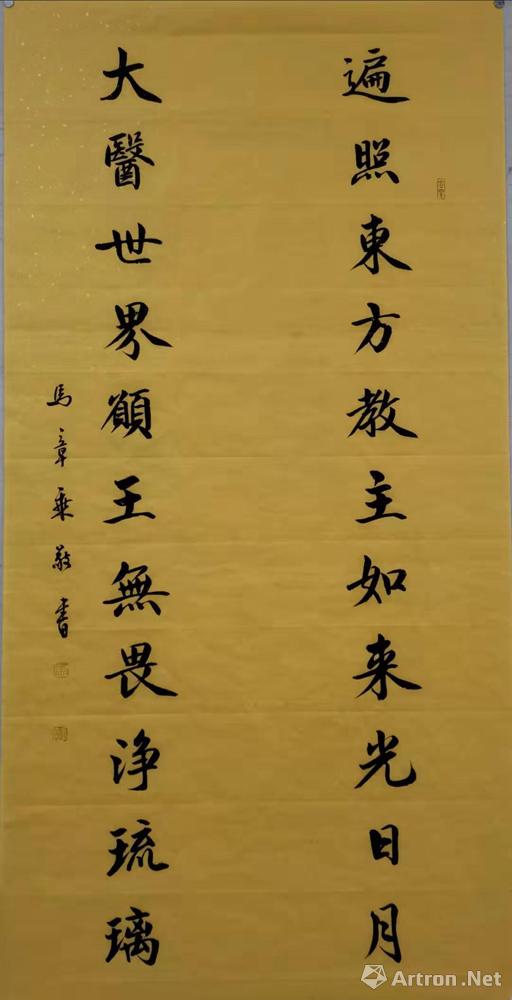 遍照東方教主如来光日月
大醫世界願王無畏浄琉璃
馬章乘敬書
Artron.Net